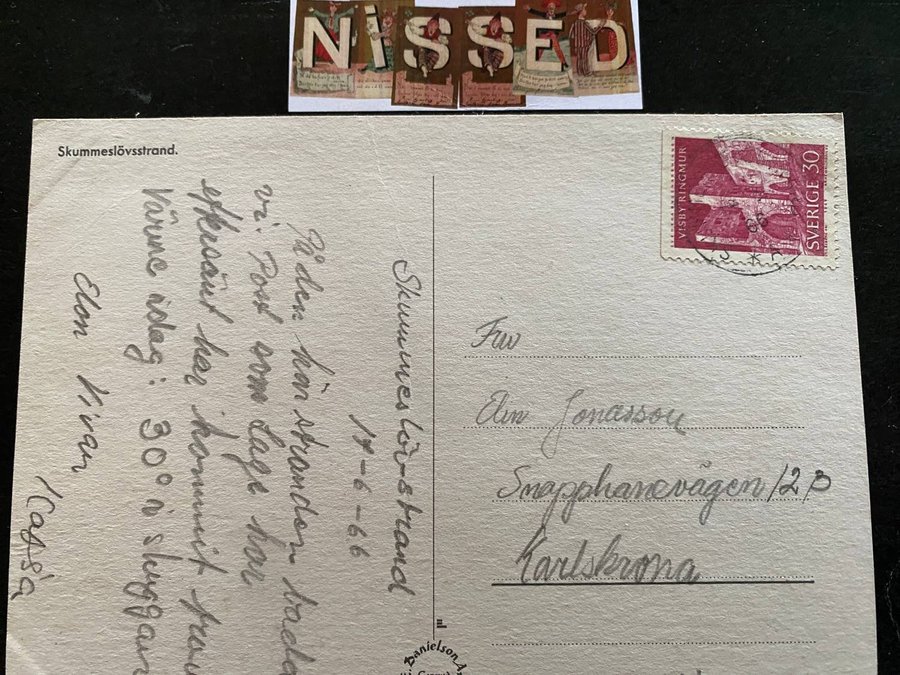 NISSED
Skummeslövsstrand.
Skummeslöv-strand
17-6-66
På den här stranden badar
vi. Post som Lage har
eftersänt har kommit fram
Värme idag: 30° i skuggan
Elon Vivan
VISBY RINGMUR
SVERIGE 30
66
Fru
Jonasson
Snapphanevägen 12 B
Karlskrona
Danielson